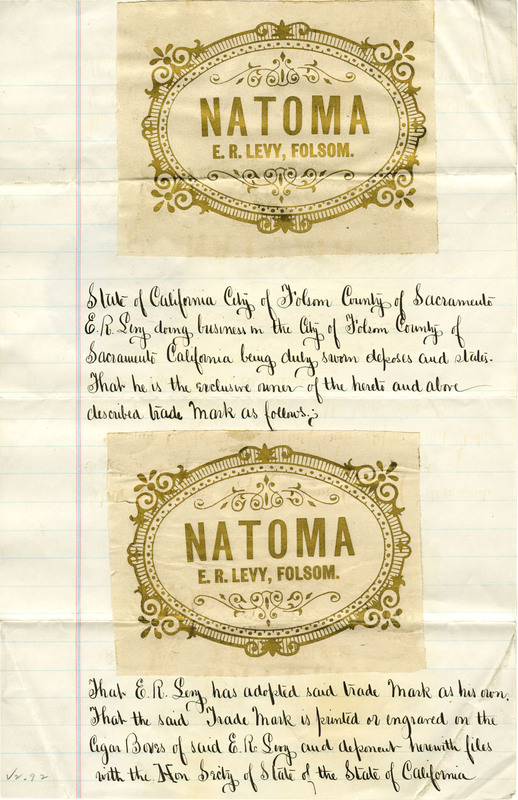 NATOMA
E. R. LEVY, FOLSOM.
State of California City of Folsom County of Sacramento
E. R. Levy doing business in the City of Folsom County of
Sacramento California being duly sworn deposes and states.
That he is the exclusive owner of the hereto and above
described trade Mark as follows:
NATOMA
E. R. LEVY, FOLSOM.
That E. R. Levy has adopted said trade Mark as his own.
That the said Trade Mark is printed or engraved on the
Cigar Boxes of said E. R. Levy and deponent herewith files
with the Hon Secty of State of the State of California